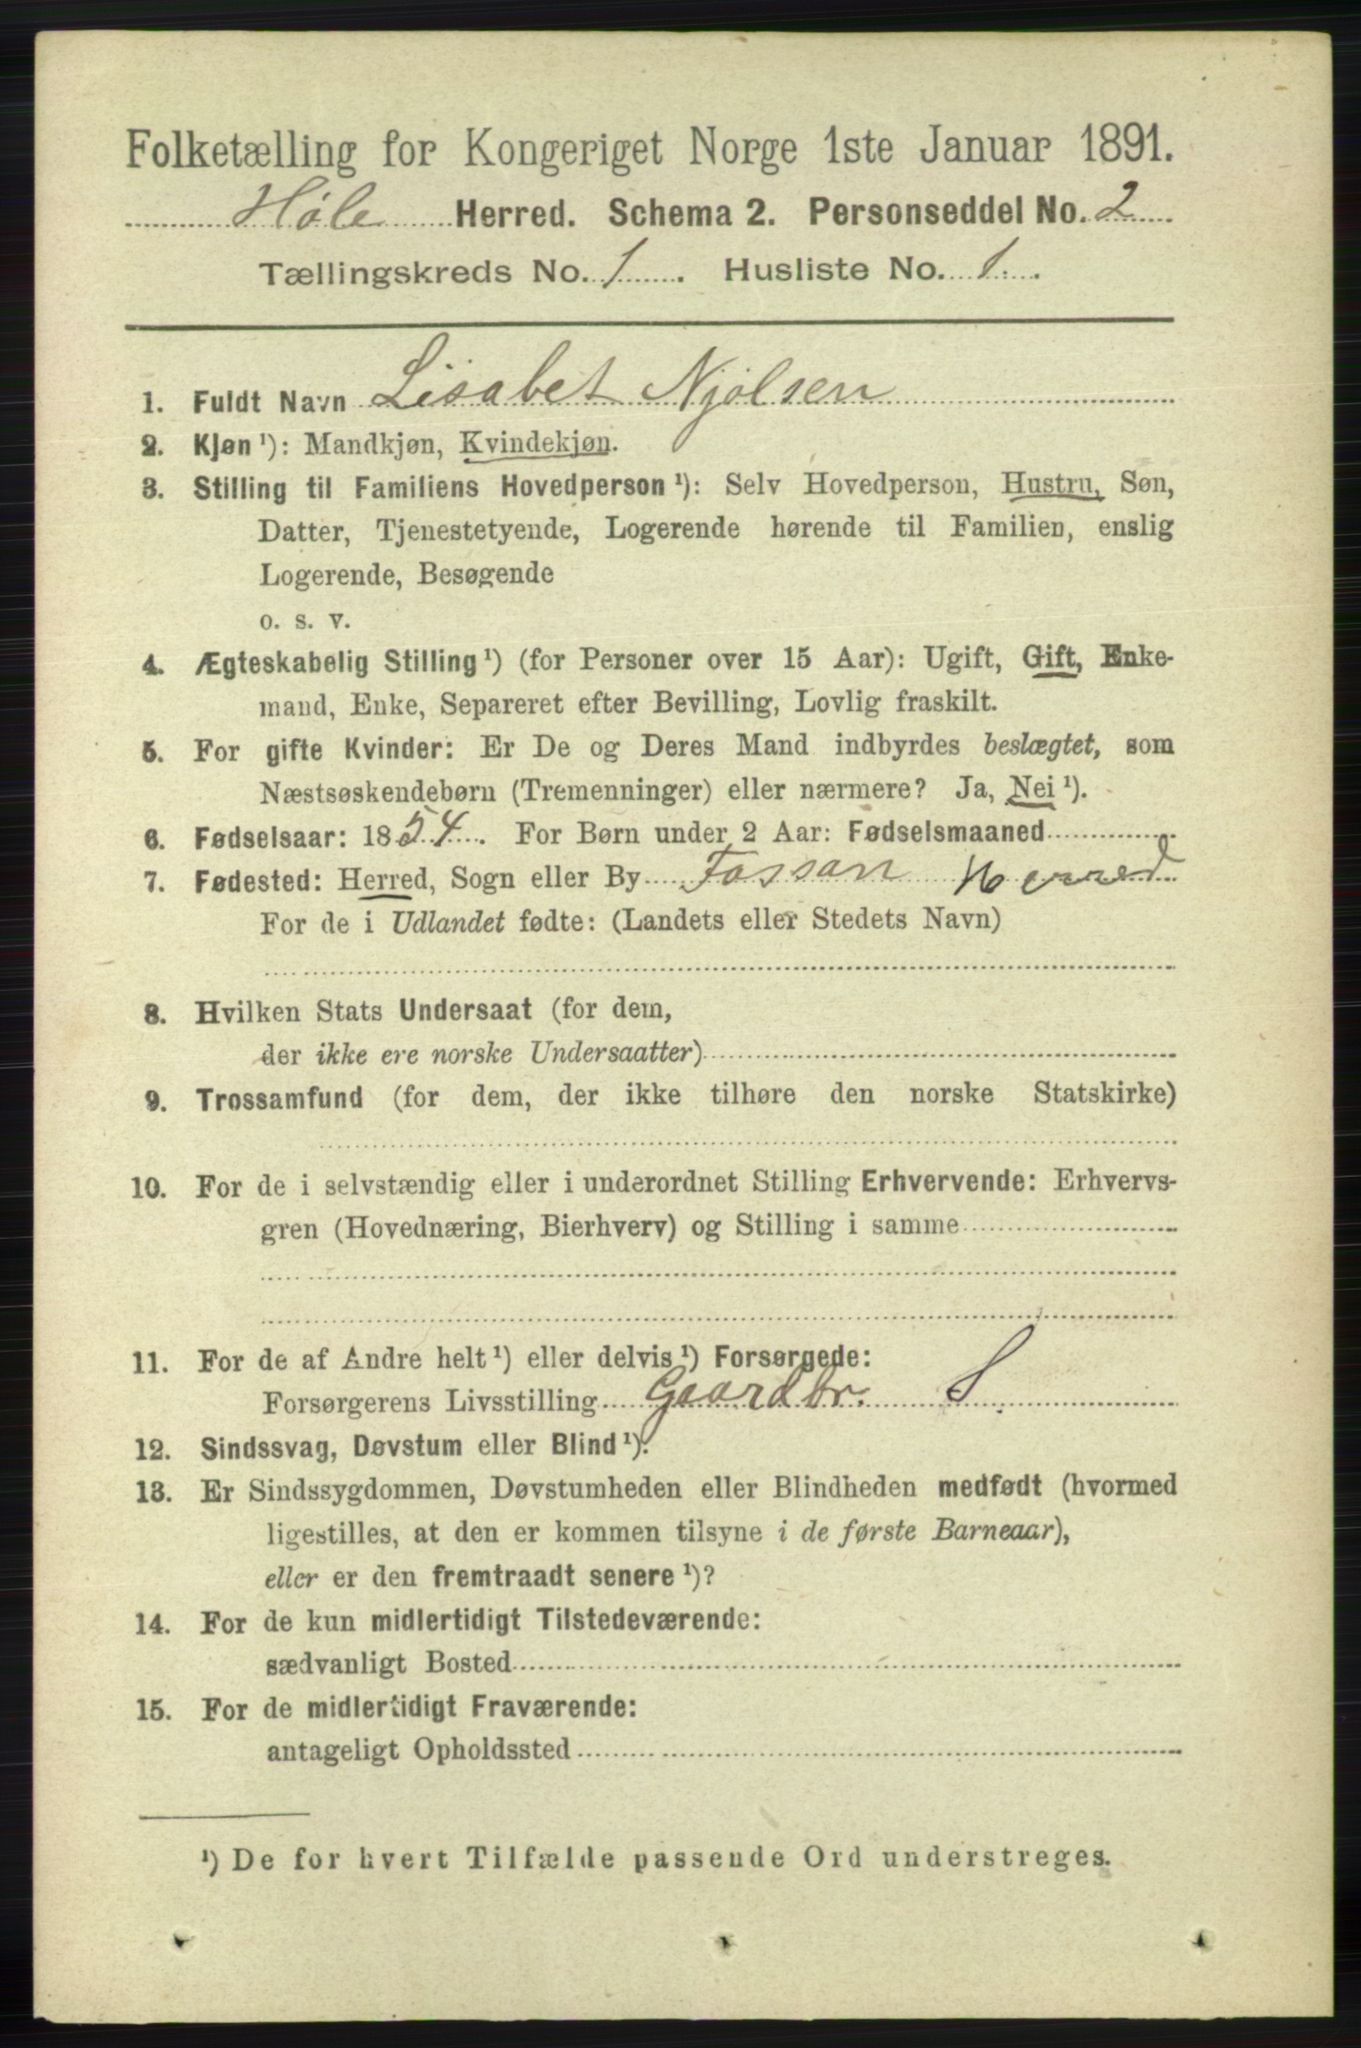 Folketælling for Kongeriget Norge 1ste Januar 1891.
Høle Herred. Schema 2. Personseddel No. 2
Tællingskreds No. 1. Husliste No. 1.
1. Fuldt Navn Lisabet Njølsen
2. Kjøn ¹): Mandkjøn, Kvindekjøn.
3. Stilling til Familiens Hovedperson ¹): Selv Hovedperson, Hustru, Søn,
Datter, Tjenestetyende, Logerende hørende til Familien, enslig
Logerende, Besøgende
o. s. v.
4. Ægteskabelig Stilling ¹) (for Personer over 15 Aar): Ugift, Gift, Enke-
mand, Enke, Separeret efter Bevilling, Lovlig fraskilt.
5. For gifte Kvinder: Er De og Deres Mand indbyrdes beslægtet, som
Næstsøskendebørn (Tremenninger) eller nærmere? Ja, Nei ¹).
6. Fødselsaar: 1854. For Børn under 2 Aar: Fødselsmaaned
7. Fødested: Herred, Sogn eller By Fossan Herred
For de i Udlandet fødte: (Landets eller Stedets Navn)
8. Hvilken Stats Undersaat (for dem,
der ikke ere norske Undersaatter)
9. Trossamfund (for dem, der ikke tilhøre den norske Statskirke)
10. For de i selvstændig eller i underordnet Stilling Erhvervende: Erhvervs-
gren (Hovednæring, Bierhverv) og Stilling i samme
11. For de af Andre helt ¹) eller delvis ¹) Forsørgede:
Forsørgerens Livsstilling Gaardbr. S
12. Sindssvag, Døvstum eller Blind ¹).
13. Er Sindssygdommen, Døvstumheden eller Blindheden medfødt (hvormed
ligestilles, at den er kommen tilsyne i de første Barneaar),
eller er den fremtraadt senere ¹)?
14. For de kun midlertidigt Tilstedeværende:
sædvanligt Bosted
15. For de midlertidigt Fraværende:
antageligt Opholdssted
¹) De for hvert Tilfælde passende Ord understreges.